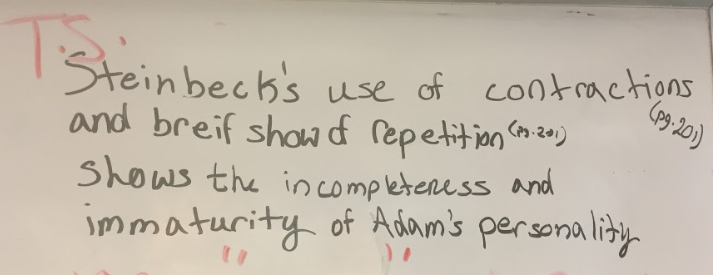 T.S.
Steinbeck's use of contractions (pg.201)
and breif show of repetition (pg.201)
shows the incompleteness and
immaturity of Adam's personality
" "